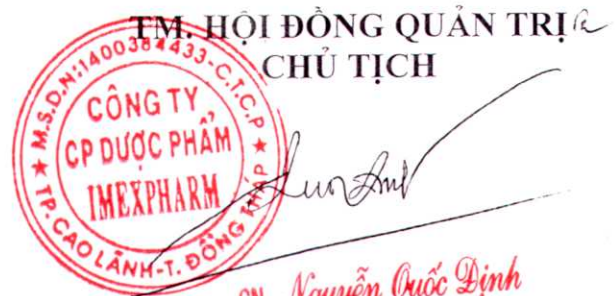 TM. HỘI ĐỒNG QUẢN TRỊ
CHỦ TỊCH
M.S.D.N:1400384433-C.T.C.P
CÔNG TY
CP DƯỢC PHẨM
IMEXPHARM
TP.CAO LÃNH-T. ĐỒNG THÁP
Nguyễn Quốc Định